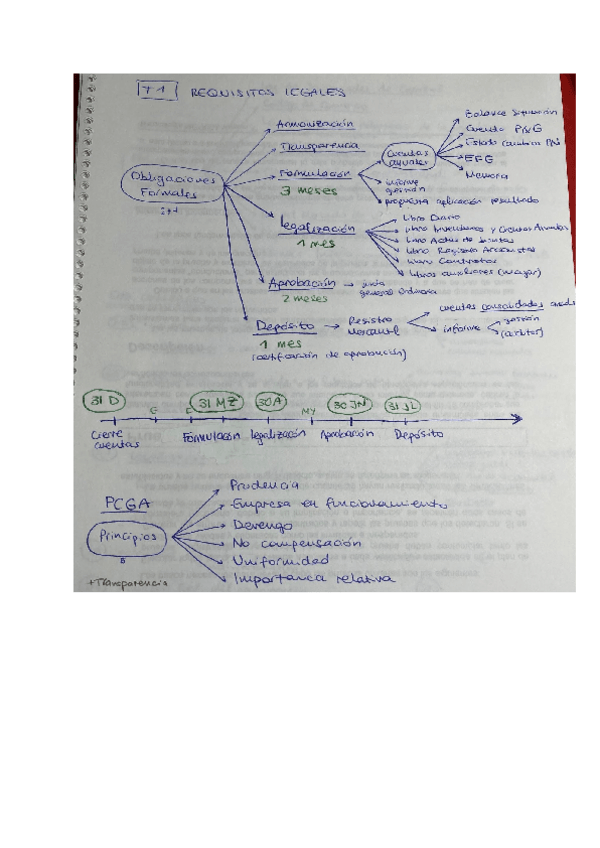 T1 REQUISITOS LEGALES
Obligaciones
Formales
Armonización
Transparencia
Formulación
3 meses
Cuentas
anuales
Balance Situación
Cuenta P&G
Estado cambios PN
EFG
Memoria
informe
gestión
propuesta aplicación resultado
legalización
1 mes
Libro Diario
Libro Inventarios y Cuentas Anuales
Libro Actas de
Libro Registro Accionistas
Libro
Libros auxiliares (mayor)
Aprobación
2 meses
junta
general ordinaria
Depósito
1 mes
(certificación de aprobación)
Registro
Mercantil
cuentas
informe
gestión
(auditor)
31 D
E
F
31 MZ
30 A
MY
30 JN
31 JL
Cierre
cuentas
Formulación
legalización
Aprobación
Depósito
PCGA
Principios
+Transparencia
Prudencia
Empresa en funcionamiento
Devengo
No compensación
Uniformidad
Importancia relativa